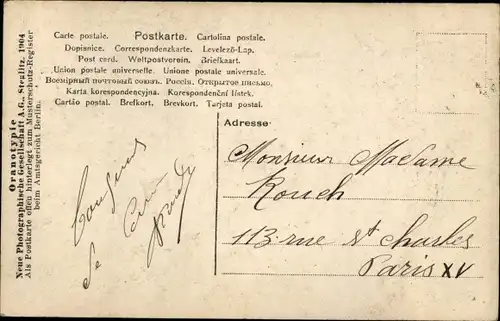 Carte postale. Postkarte. Cartolina postale.
Dopisnice. Correspondenzkarte. Levelező-Lap.
Post card. Weltpostverein. Briefkaart.
Union postale universelle. Unione postale universale.
Всемірный почтовый союзъ. Россія. Открытое письмо.
Karta korespondencyjna. Korespondenční lístek.
Cartão postal. Brefkort. Brevkort. Tarjeta postal.
Oranotypie
Neue Photographische Gesellschaft A.G., Steglitz. 1904
Als Postkarte offen hinterlegt zum Musterschutz-Register
beim Amtsgericht Berlin.
Adresse:
Monsieur Madame
Rouch
113 rue St Charles
Paris XV